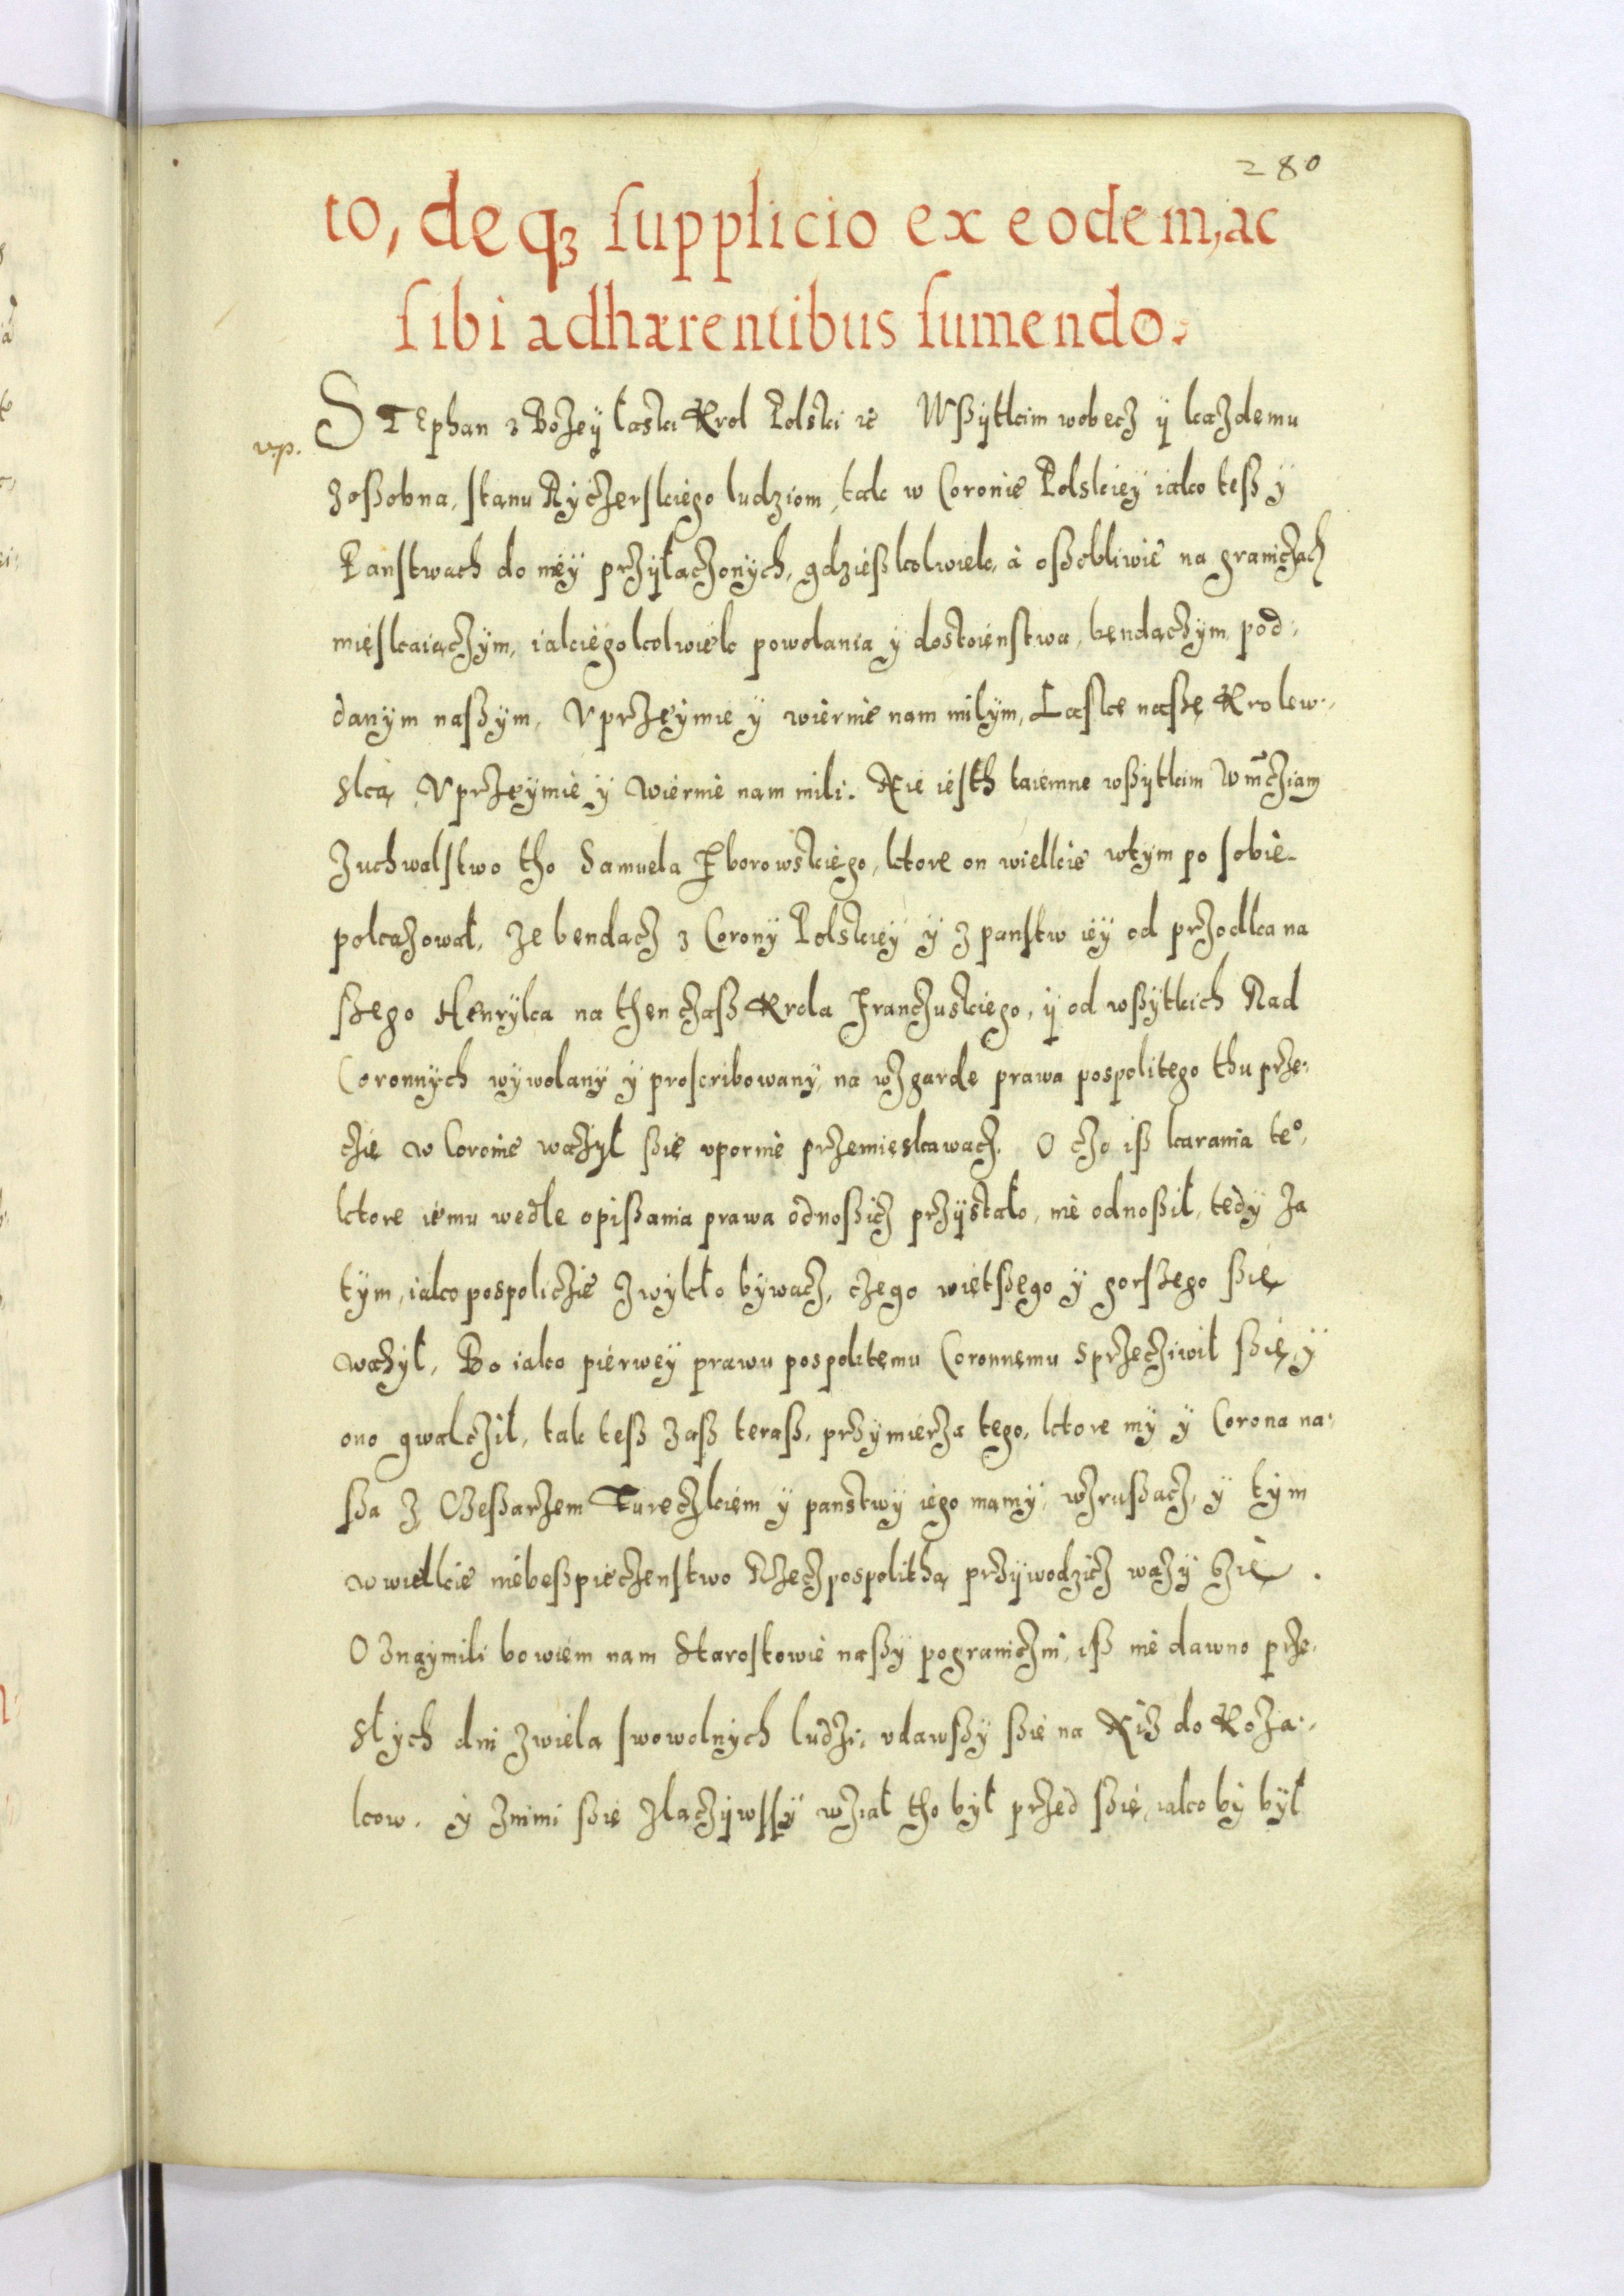 280
to, deq₃ supplicio ex eodem, ac
sibi adhærentibus sumendo.
vp.
STEphan z Bożeÿ łaski Krol Polski rc Wßÿtkim wobecz ÿ kazdemu
zoßobna, stanu Rÿczerskiego ludziom, tak w Coronie Polskieÿ iako teß ÿ
Panstwach do nieÿ prziłaczonÿch, gdzießkolwiek, à oßobliwie na graniczach
mieskaiączÿm, iakiegokolwiek powolania ÿ dostoienstwa, bendączÿm, pod:
danÿm naßÿm, Vprzeÿmie ÿ wiernie nam milÿm, Łaske naßę Krolew:
ską, Vprzeÿmie ÿ wiernie nam mili. Nie iesth taiemne wßÿtkim Wm̃cziam
zuchwalstwo tho Samuela Zborowskiego, ktore on wielkie wtÿm po sobie
pokazował, ze bendacz z Coronÿ Polskieÿ ÿ z panstw ieÿ od przodka na
ßego Henrÿka na then czaß Krola Franczuskiego, ÿ od wßÿtkich Rad
Coronnÿch wÿwolanÿ ÿ proscribowanÿ, na wzgarde prawa pospolitego thu prze:
czie w Coronie ważÿł ßię vpornie przemieskawacz. O czo iß karania teº,
ktore iemu wedle opißania prawa odnoßicz przÿstało, nie odnoßił, tedÿ za
tÿm, iako pospoliczie zwÿkło bÿwacz, czego wietßego ÿ gorszego ßię
ważÿł, Bo iako pierweÿ prawu pospolitemu Coronnemu Sprzecziwił ßię, ÿ
ono gwalcził, tak teß zaß teraß, przÿmierza tego, ktore mÿ ÿ Corona na:
ßa z Czeßarzem Tureczkiem ÿ panstwÿ iego mamÿ, wzrußacz, ÿ tÿm
wwielkie niebeßpieczenstwo Rzeczpospolitha przÿwodzicz wazÿ ßie.
Oznaÿmili bowiem nam Starostowie naßÿ pograniczni, iß nie dawno prze:
słÿch dni zwiela swowolnÿch ludzi, vdawßÿ ßie na Niz do Koza:
kow. ÿ znimi ßie zlaczÿwssÿ wział tho bÿł przed ßie, iako bÿ bÿł